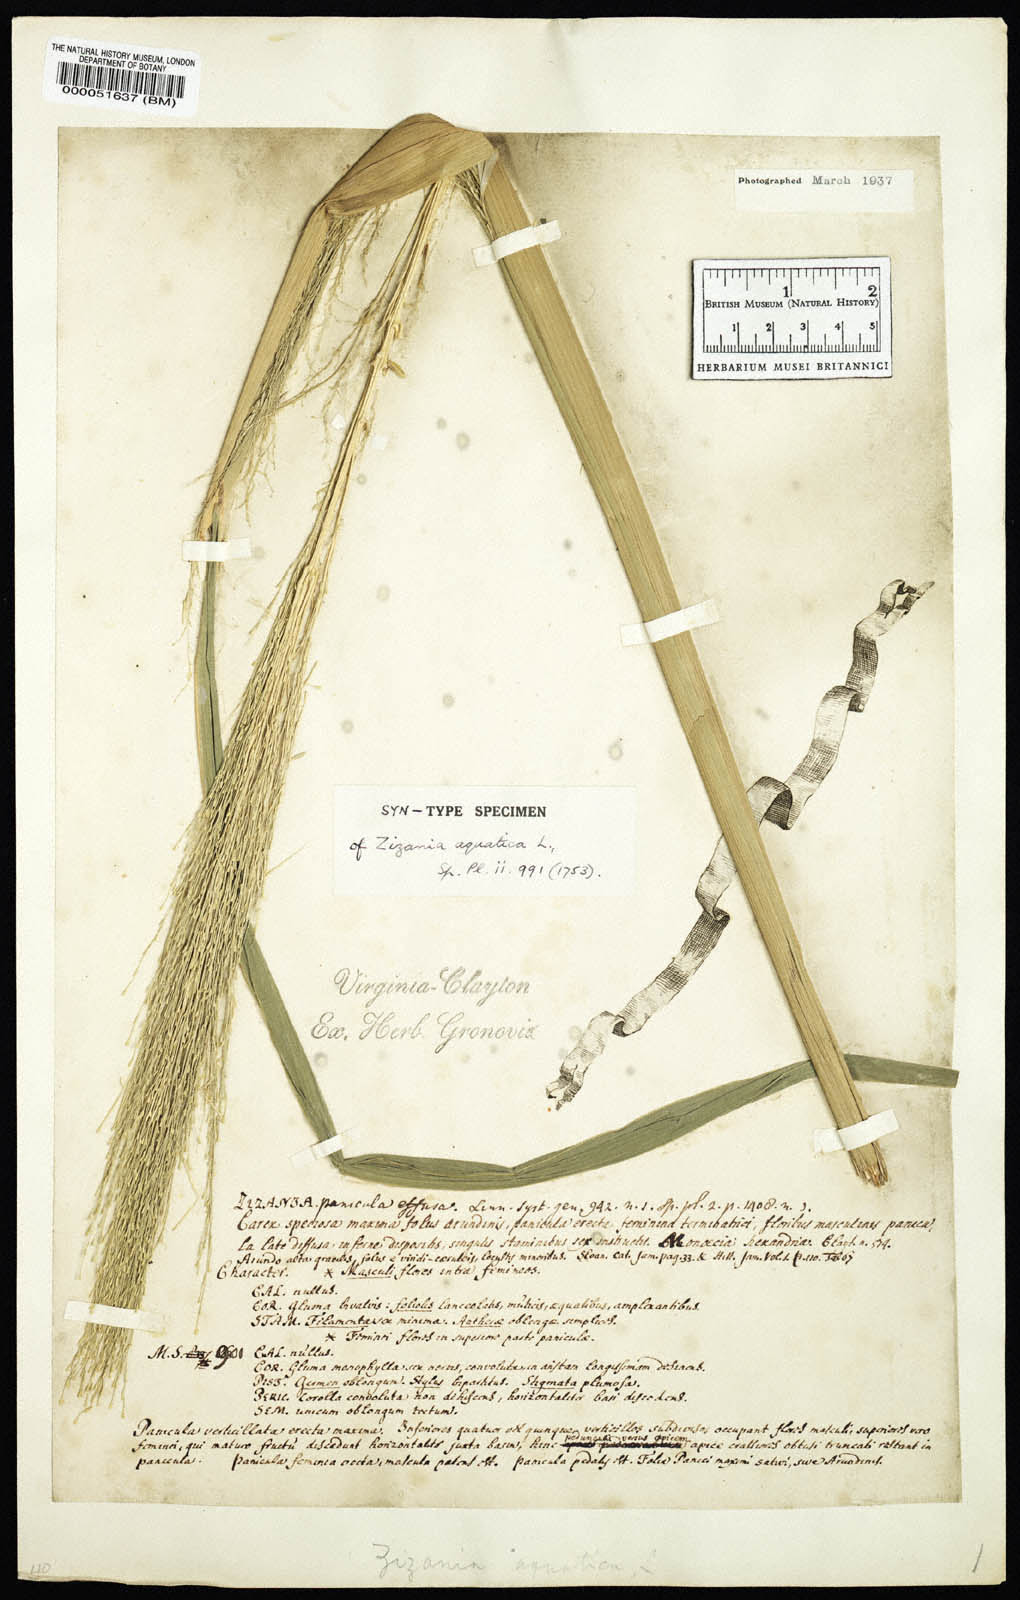 THE NATURAL HISTORY MUSEUM, LONDON
DEPARTMENT OF BOTANY
000051637 (BM)
Photographed March 1937
1 2
BRITISH MUSEUM (NATURAL HISTORY)
1 2 3 4 5
HERBARIUM MUSEI BRITANNICI
SYN-TYPE SPECIMEN
of Zizania aquatica L.,
Sp. Pl. ii. 991 (1753).
Virginia-Clayton
Ex. Herb. Gronovii
ZIZANIA panicula effusa. Linn. Syst. gen. 942. n. 1. sp. pl. 2. p. 1408. n. 1.
Carex speciosa maxima foliis arundinis, panicula erecta feminina terminatrici, floribus masculinis panicu,
la late diffusa inferne dispositis, singulis staminibus sex instructis. Monoecia hexandria. Clayt. n. 574.
Arundo alta gracilis, foliis e viridi-cæruleis, locustis minoribus. Sloan. Cat. Jam. pag. 33. & Hist. Jam. Vol. 1. p. 110. T. 67
Character. * Masculi flores intra femineos.
CAL. nullus.
COR. Gluma bivalvis: foliolis lanceolatis, muticis, æqualibus, amplexantibus.
STAM. Filamenta sex minima. Antheræ oblongæ simplices.
* Feminei flores in superiore parte paniculæ.
M. S. 901 CAL. nullus.
COR. Gluma monophylla sex nervis, convoluta in aristam longissimam desinens.
PIST. Germen oblongum. Stylus bipartitus. Stigmata plumosa.
PERIC. Corolla convoluta non dehiscens, horizontaliter basi discedens.
SEM. unicum oblongum tectum.
Panicula verticillata erecta maxima. Inferiores quatuor est quinque verticillos subdivisos occupant flores masculi, superiores vero
feminei, qui maturo fructu discedunt horizontalis juxta basin, hinc pedunculi versus apicem apice crassiores obtusi truncati restant in
panicula. Panicula feminea erecta, mascula patens est. Panicula pedalis est. Folia Panici maximi sativi, sive Arundinis.
110
Zizania aquatica, L
1